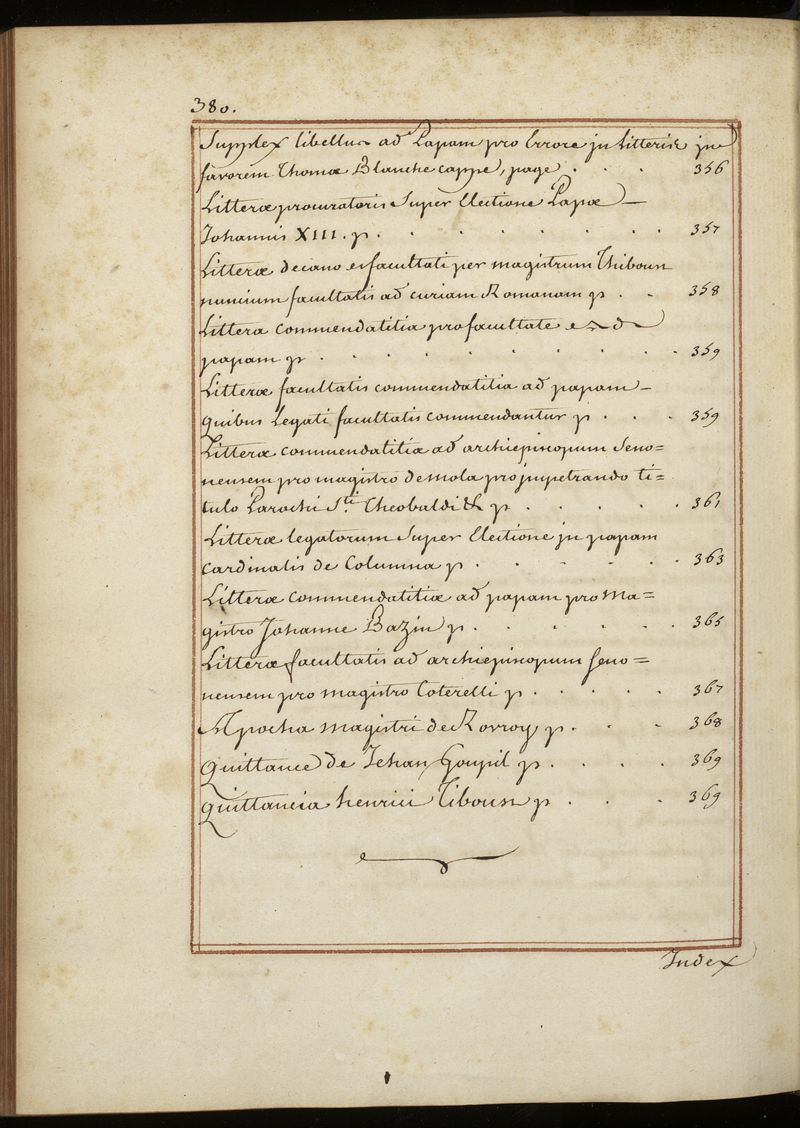 380.
Supplex libellus ad Papam pro Errore in Litteris in
favorem Thomæ Blanche cappe, page . . . 356
Litteræ procuratoris Super Electione Papæ —
Johannis XIII. p. . . . . . . . 357
Litteræ decano et facultati per magistrum Thiboun
nuncium facultatis ad curiam Romanam p . . 358
Littera commendatitia pro facultate ad
papam p . . . . . . . . 359
Litteræ facultatis commendatitia ad papam —
quibus Legati facultatis commendantur p . . . 359
Litteræ commendatitiæ ad archiepiscopum Seno=
nensem pro magistro de mola pro impetrando ti=
tulo Parochi S.ti Theobaldi &c p . . . . . 361
Litteræ legatorum Super Electione in papam
Cardinalis de Columna p . . . . . . 363
Litteræ commendatitiæ ad papam pro Ma=
gistro Johanne Bazin p . . . . . . 365
Litteræ facultatis ad archiepiscopum Seno=
nensem pro magistro Coterelli p . . . . . 367
Apocha magistri de Rovroy p . . . 368
Quittance de Jehan Goupil p . . . . 369
Quittancia henrici Tiboun p . . . 369
Index